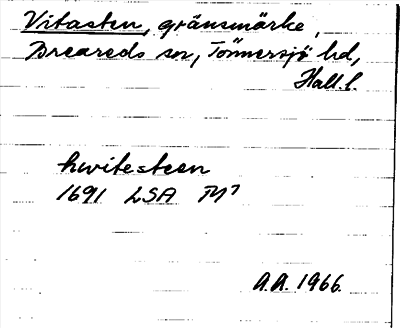 Vitasten, gränsmärke,
Breareds sn, Tönnersjö hd,
Hall. l.
hwitesteen
1691 LSA
A.A. 1966.